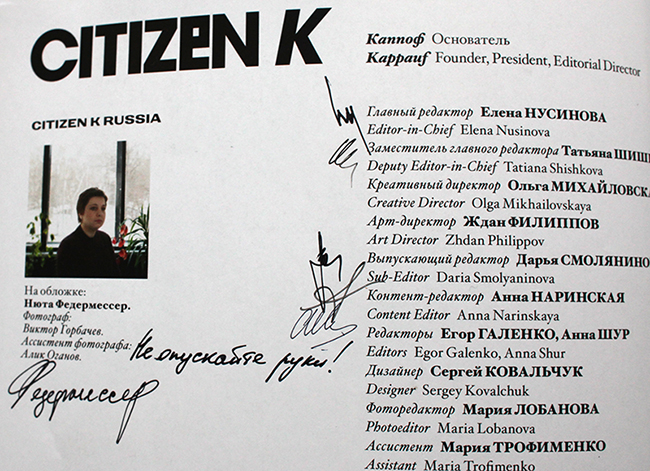 CITIZEN K
CITIZEN K RUSSIA
На обложке:
Нюта Федермессер.
Фотограф:
Виктор Горбачев.
Ассистент фотографа:
Алик Оганов.
Не опускайте руки!
Федермессер
Каппоф Основатель
Kappauf Founder, President, Editorial Director
Главный редактор Елена НУСИНОВА
Editor-in-Chief Elena Nusinova
Заместитель главного редактора Татьяна ШИШ
Deputy Editor-in-Chief Tatiana Shishkova
Креативный директор Ольга МИХАЙЛОВСКА
Creative Director Olga Mikhailovskaya
Арт-директор Ждан ФИЛИППОВ
Art Director Zhdan Philippov
Выпускающий редактор Дарья СМОЛЯНИНО
Sub-Editor Daria Smolyaninova
Контент-редактор Анна НАРИНСКАЯ
Content Editor Anna Narinskaya
Редакторы Егор ГАЛЕНКО, Анна ШУР
Editors Egor Galenko, Anna Shur
Дизайнер Сергей КОВАЛЬЧУК
Designer Sergey Kovalchuk
Фоторедактор Мария ЛОБАНОВА
Photoeditor Maria Lobanova
Ассистент Мария ТРОФИМЕНКО
Assistant Maria Trofimenko